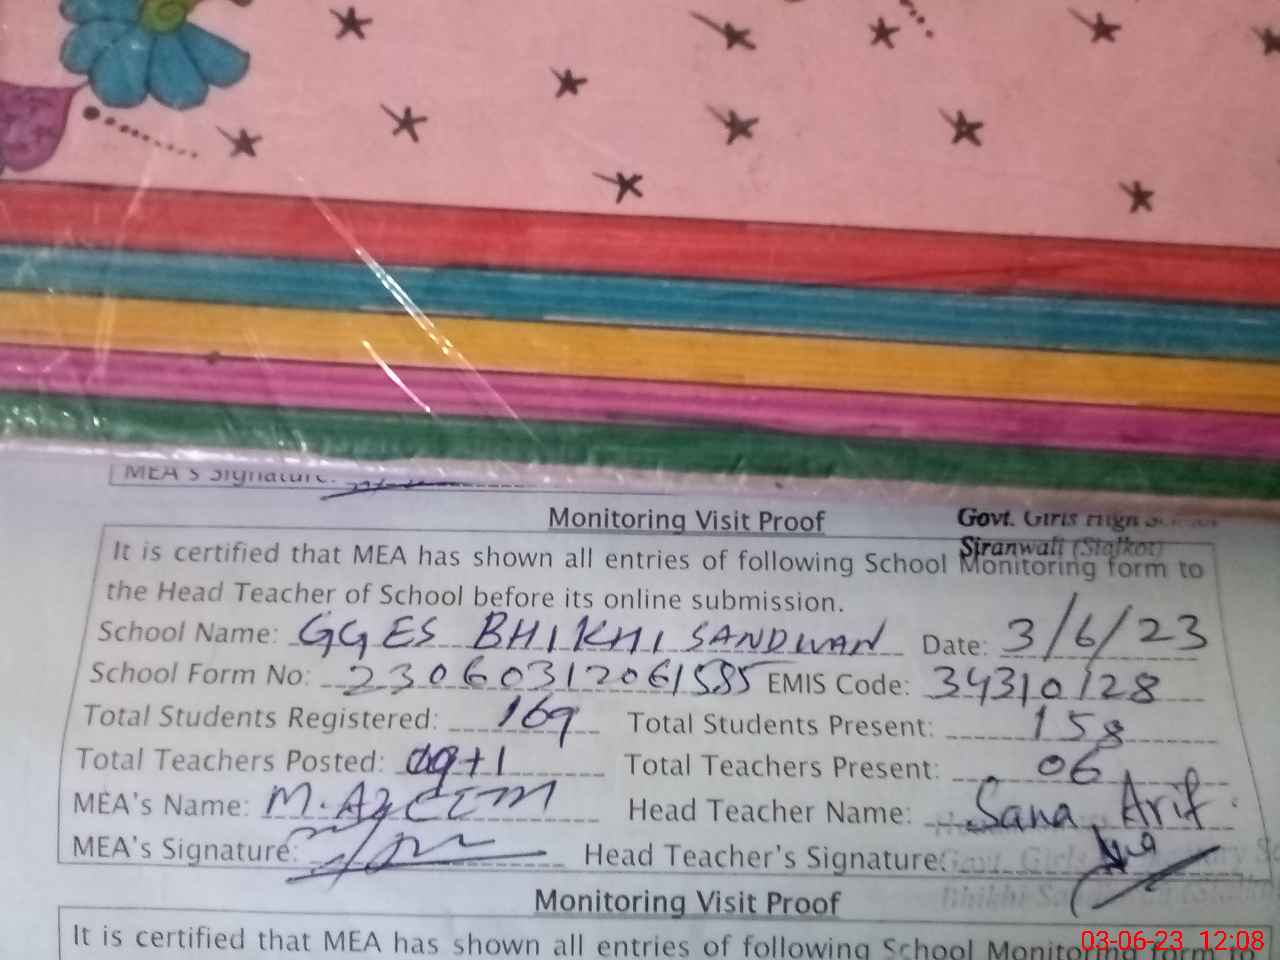 MEA's Signature:
Monitoring Visit Proof
Govt. Girls High
Siranwali (Sialkot)
It is certified that MEA has shown all entries of following School Monitoring form to
the Head Teacher of School before its online submission.
School Name: GGES BHIKHI SANDWAN Date: 3/6/23
School Form No: 23060312061585 EMIS Code: 34310128
Total Students Registered: 169 Total Students Present: 158
Total Teachers Posted: 09+1 Total Teachers Present: 06
MEA's Name: M. Azeem Head Teacher Name: Sana Arif
MEA's Signature: Head Teacher's Signature:
Govt. Girls
Bhikhi
Monitoring Visit Proof
It is certified that MEA has shown all entries of following School Monitoring form to
03-06-23 12:08